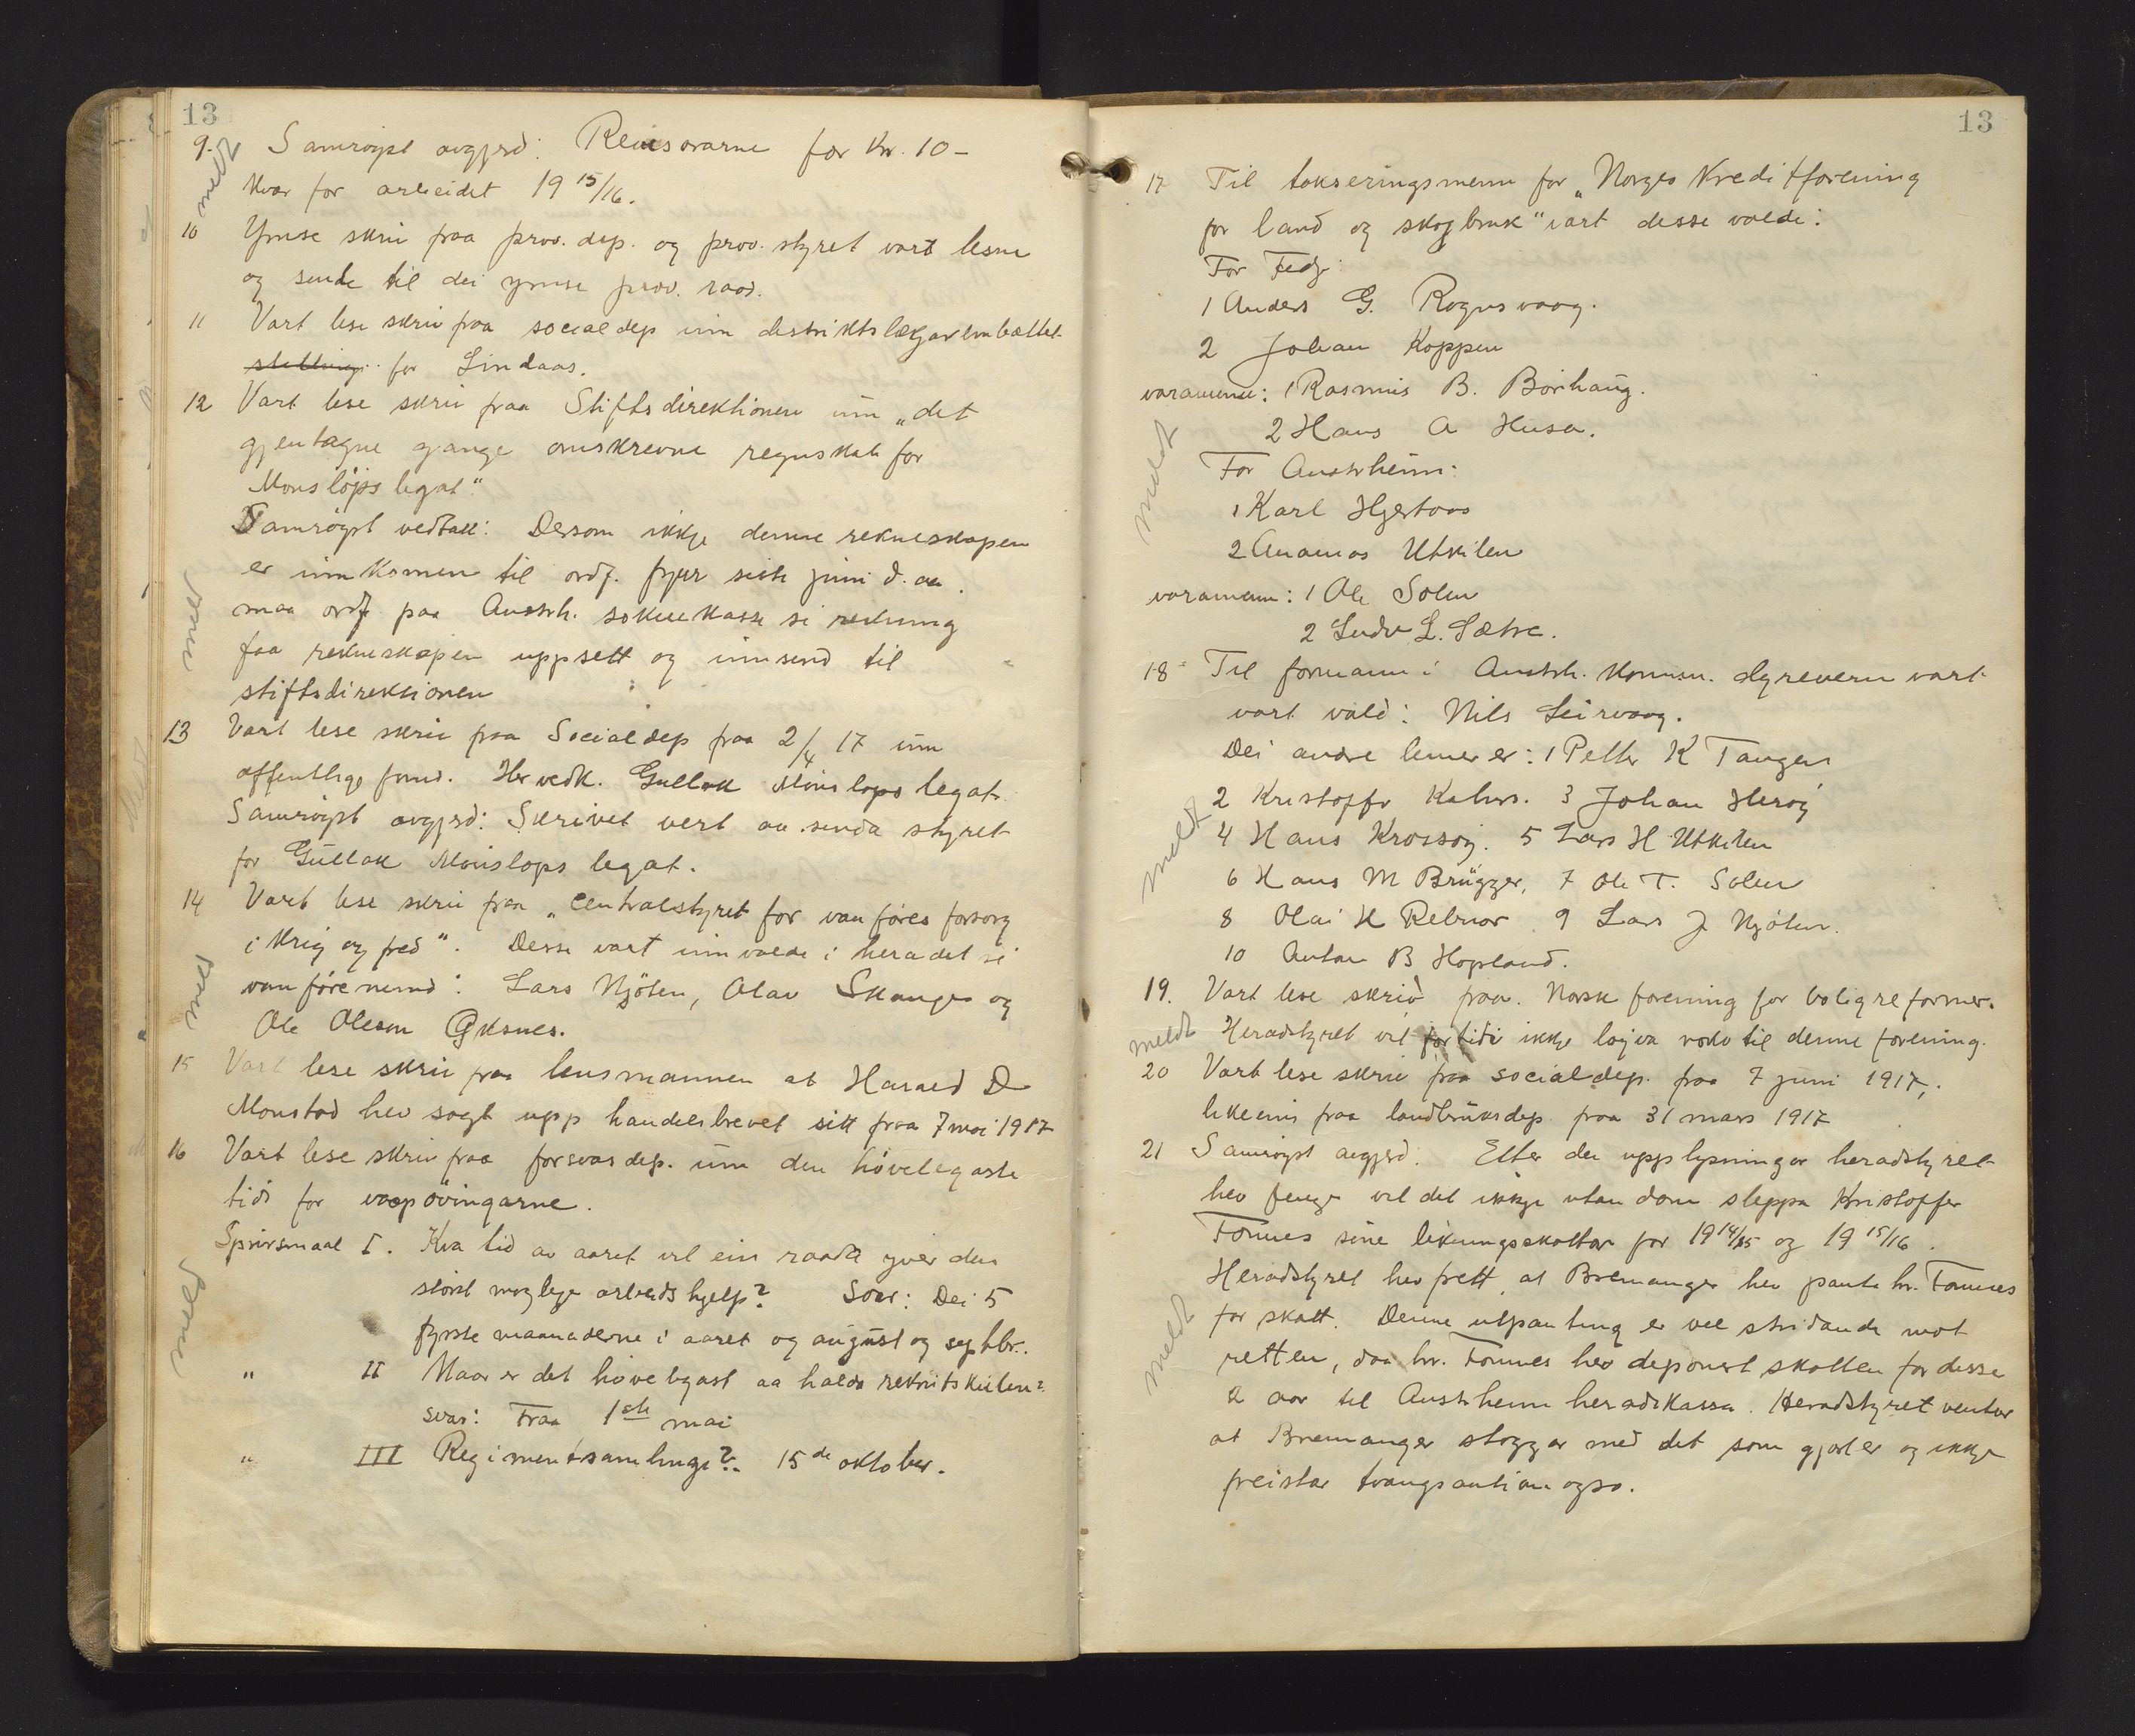 13
9. Samrøyst avgjerd: Revisorarne fær Kr. 10 –
meldt
kvar for arbeidet 19 15/16.
10 Ymse skriv fraa prov. dep. og prov. styret vart lesne
og sende til dei ymse prov. raad.
11 Vart lese skriv fraa socialdep um distriktslækjarembættet
stilling for Lindaas.
12 Vart lese skriv fraa Stiftsdirektionen um „det
gjentagne gange omskrevne regnskab for
Monsløps legat."
Samrøyst vedtak: Dersom ikkje denne rekneskapen
er innkomen til ordf. fyrr siste juni d. aa.
maa ordf. paa Austrh. soknekasse si rekning
meldt
faa rekneskapen uppsett og innsend til
stiftsdirektionen
13 Vart lese skriv fraa Socialdep fraa 2/4 17 um
offentlige fond. Her vedk. Gullak Monslops legat.
Samrøyst avgjerd: Skrivet vert aa senda styret
for Gullak Monslops legat.
14 Vart lese skriv fraa „Centralstyret for vanføres forsorg
i krig og fred". Desse vart innvalde i heradet si
meldt
vanførenemd: Lars Njøten, Olav Skauge og
Ole Oleson Øksnes.
15 Vart lese skriv fraa lensmannen at Harald D
Monstad hev sagt upp handelsbrevet sitt fraa 7 mai 1917
16 Vart lese skriv fraa forsvarsdep. um den høvelegaste
tidi for vaapøvingarne.
Spursmaal I. Kva tid av aaret vil ein raada yver den
meldt
størst moglege arbeidshjelp? Svar: Dei 5
fyrste maanaderne i aaret og august og septbr.
" II Naar er det høvelegast aa halda rekrutskulen?
svar: Fraa 1ste mai
" III Regimentsamlinge? 15de oktober.
13
17 Til takseringsmenn for „Norges Kreditforening
for land og skogbruk" vart desse valde:
For Fedje:
1 Anders G. Rognsvaag.
2 Johan Koppen
varamenn: 1 Rasmus B. Børhaug.
2 Hans A Husa.
meldt
For Austrheim:
1 Karl Hjertaas
2 Ananias Utkilen
varamenn: 1 Ole Solen
2 Ludv L. Sætre.
18 Til formann i Austrh. kommn. dyrevern vart
vart vald: Nils Leirvaag.
Dei andre lemer er: 1 Petter K Tangen
2 Kristoffer Kalvs. 3 Johan Herøy
meldt
4 Hans Krossøy. 5 Lars H Utkilen
6 Hans M Brügger, 7 Ole T. Solen
8 Olai H Rebnor 9 Lars J Njøten.
10 Anton B Hopland.
19. Vart lese skriv fraa Norsk forening for boligreformer.
meldt Heradstyret vil for tidi ikkje løyva noko til denne forening.
20 Vart lese skriv fraa socialdep. fraa 7 juni 1917;
likeeins fraa landbruksdep. fraa 31 mars 1917
21 Samrøyst avgjerd. Etter dei upplysningar heradstyret
hev fenge vil det ikkje utan dom sleppa Kristoffer
Fonnes sine likningsskattar for 19 14/15 og 19 15/16.
Heradstyret hev frett, at Bremanger hev panta hr. Fonnes
meldt
for skatt. Denne utpanting er vel stridande mot
retten, daa hr. Fonnes hev deponert skatten for desse
2 aar til Austrheim heradskassa. Heradstyret ventar
at Bremanger stoggar med det som gjort er og ikkje
freistar tvangsauktion ogso.